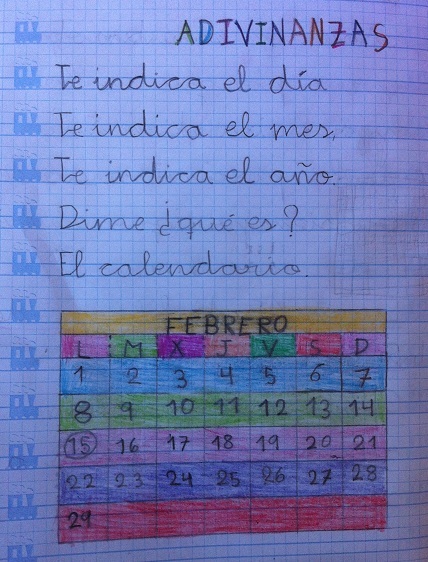 ADIVINANZAS
Te indica el día
Te indica el mes,
Te indica el año.
Dime ¿qué es?
El calendario.
FEBRERO
L M X J V S D
1 2 3 4 5 6 7
8 9 10 11 12 13 14
15 16 17 18 19 20 21
22 23 24 25 26 27 28
29